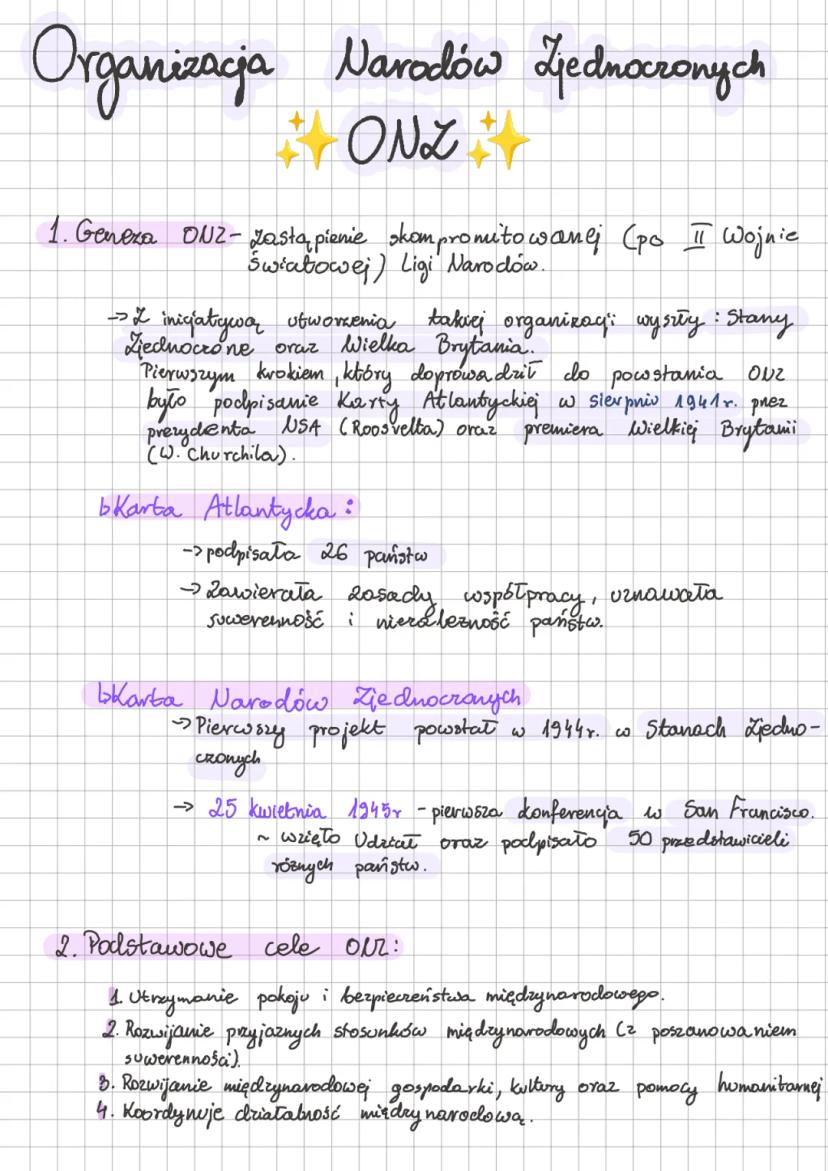 Organizacja Narodów Zjednoczonych
✨ONZ✨
1. Geneza ONZ- zastąpienie skompromitowanej (po II Wojnie
Światowej) Ligi Narodów.
-> Z inicjatywą utworzenia takiej organizacji wyszły : Stany
Zjednoczone oraz Wielka Brytania.
Pierwszym krokiem, który doprowadził do powstania ONZ
było podpisanie Karty Atlantyckiej w sierpniu 1941r. przez
prezydenta USA (Roosvelta) oraz premiera Wielkiej Brytanii
(W. Churchila).
↳Karta Atlantycka :
-> podpisała 26 państw
-> Zawierała zasady współpracy, uznawała
suwerenność i niezależność państw.
↳Karta Narodów Zjednoczonych
-> Pierwszy projekt powstał w 1944r. w Stanach Zjedno-
czonych
-> 25 kwietnia 1945r - pierwsza konferencja w San Francisco.
~ wzięło udział oraz podpisało 50 przedstawicieli
różnych państw.
2. Podstawowe cele ONZ:
1. Utrzymanie pokoju i bezpieczeństwa międzynarodowego.
2. Rozwijanie przyjaznych stosunków międzynarodowych (z poszanowaniem
suwerenności).
3. Rozwijanie międzynarodowej gospodarki, kultury oraz pomocy humanitarnej
4. Koordynuje działalność międzynarodową.